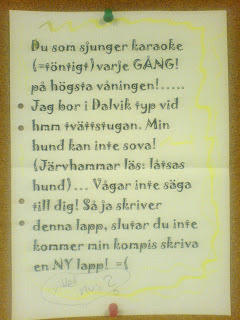 Du som sjunger karaoke
(=töntigt) varje GÅNG!
på högsta våningen!.....
Jag bor i Dalvik typ vid
hmm tvättstugan. Min
hund kan inte sova!
(Järvhammar läs: låtsas
hund)... Vågar inte säga
till dig! Så ja skriver
denna lapp, slutar du inte
kommer min kompis skriva
en NY lapp! =(